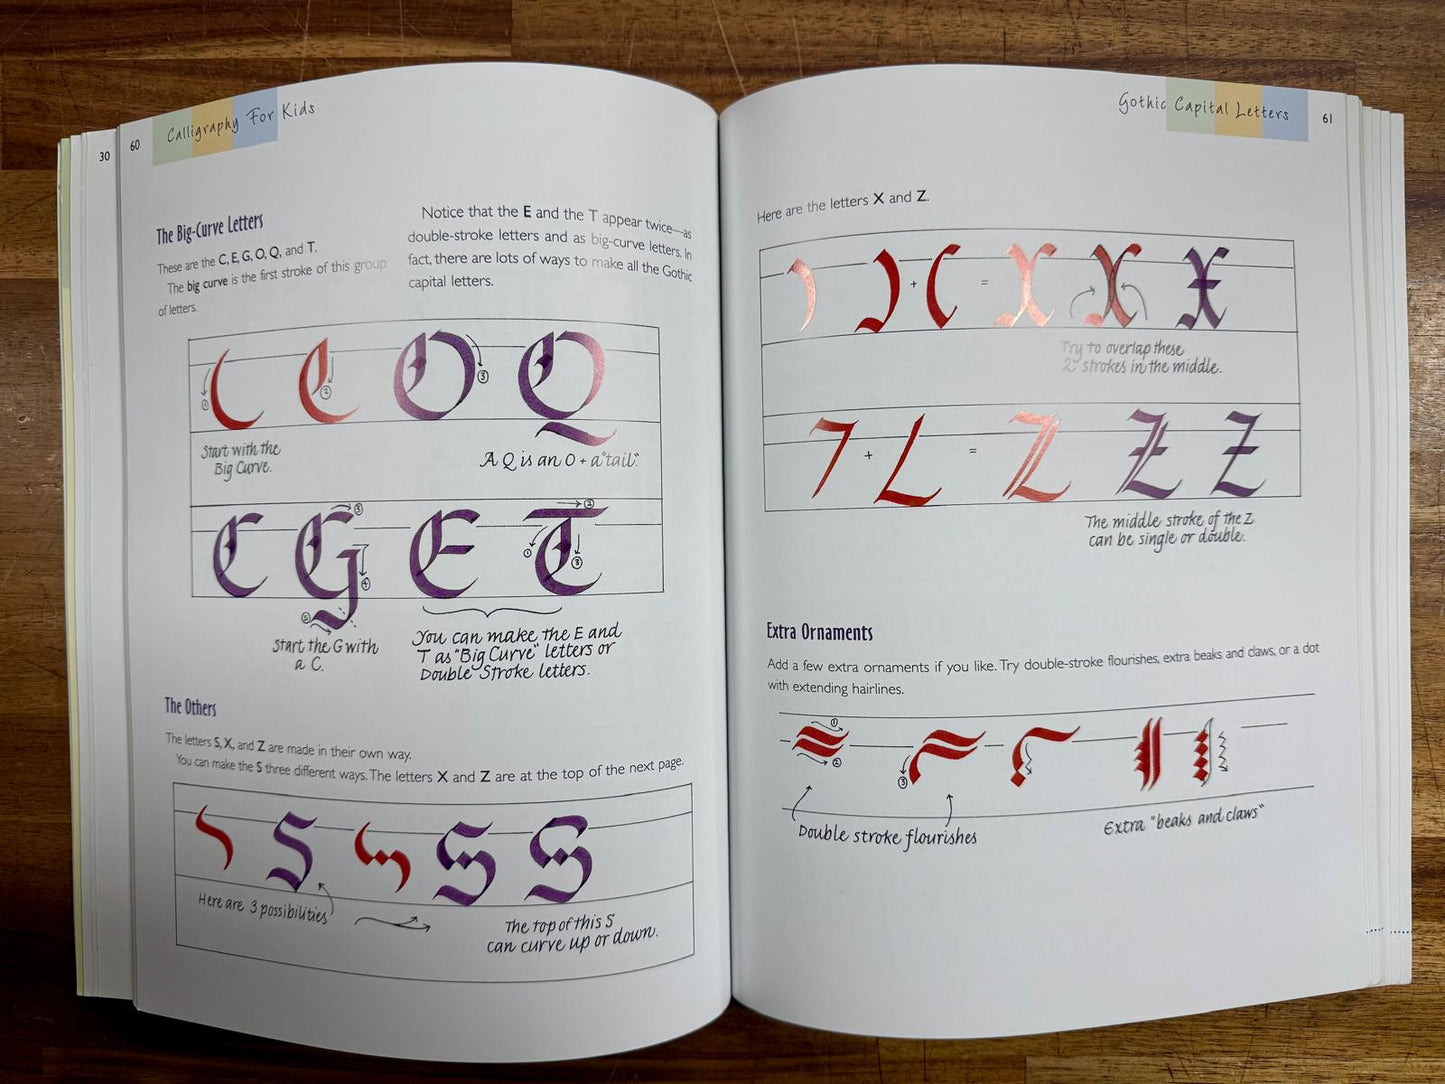 30
60
Calligraphy For Kids
The Big-Curve Letters
These are the C, E, G, O, Q, and T.
The big curve is the first stroke of this group
of letters.
Notice that the E and the T appear twice—as
double-stroke letters and as big-curve letters. In
fact, there are lots of ways to make all the Gothic
capital letters.
C O Q
1 2 3
Start with the
Big Curve.
A Q is an O + a "tail".
C G E T
3 4 5 1 2 3
Start the G with
a C.
You can make the E and
T as "Big Curve" letters or
Double Stroke letters.
The Others
The letters S, X, and Z are made in their own way.
You can make the S three different ways. The letters X and Z are at the top of the next page.
S S S
Here are 3 possibilities
The top of this S
can curve up or down.
Gothic Capital Letters
61
Here are the letters X and Z.
+ = X X X
Try to overlap these
2 strokes in the middle.
+ = Z Z Z
The middle stroke of the Z
can be single or double.
Extra Ornaments
Add a few extra ornaments if you like. Try double-stroke flourishes, extra beaks and claws, or a dot
with extending hairlines.
1 2 3
Double stroke flourishes
Extra "beaks and claws"